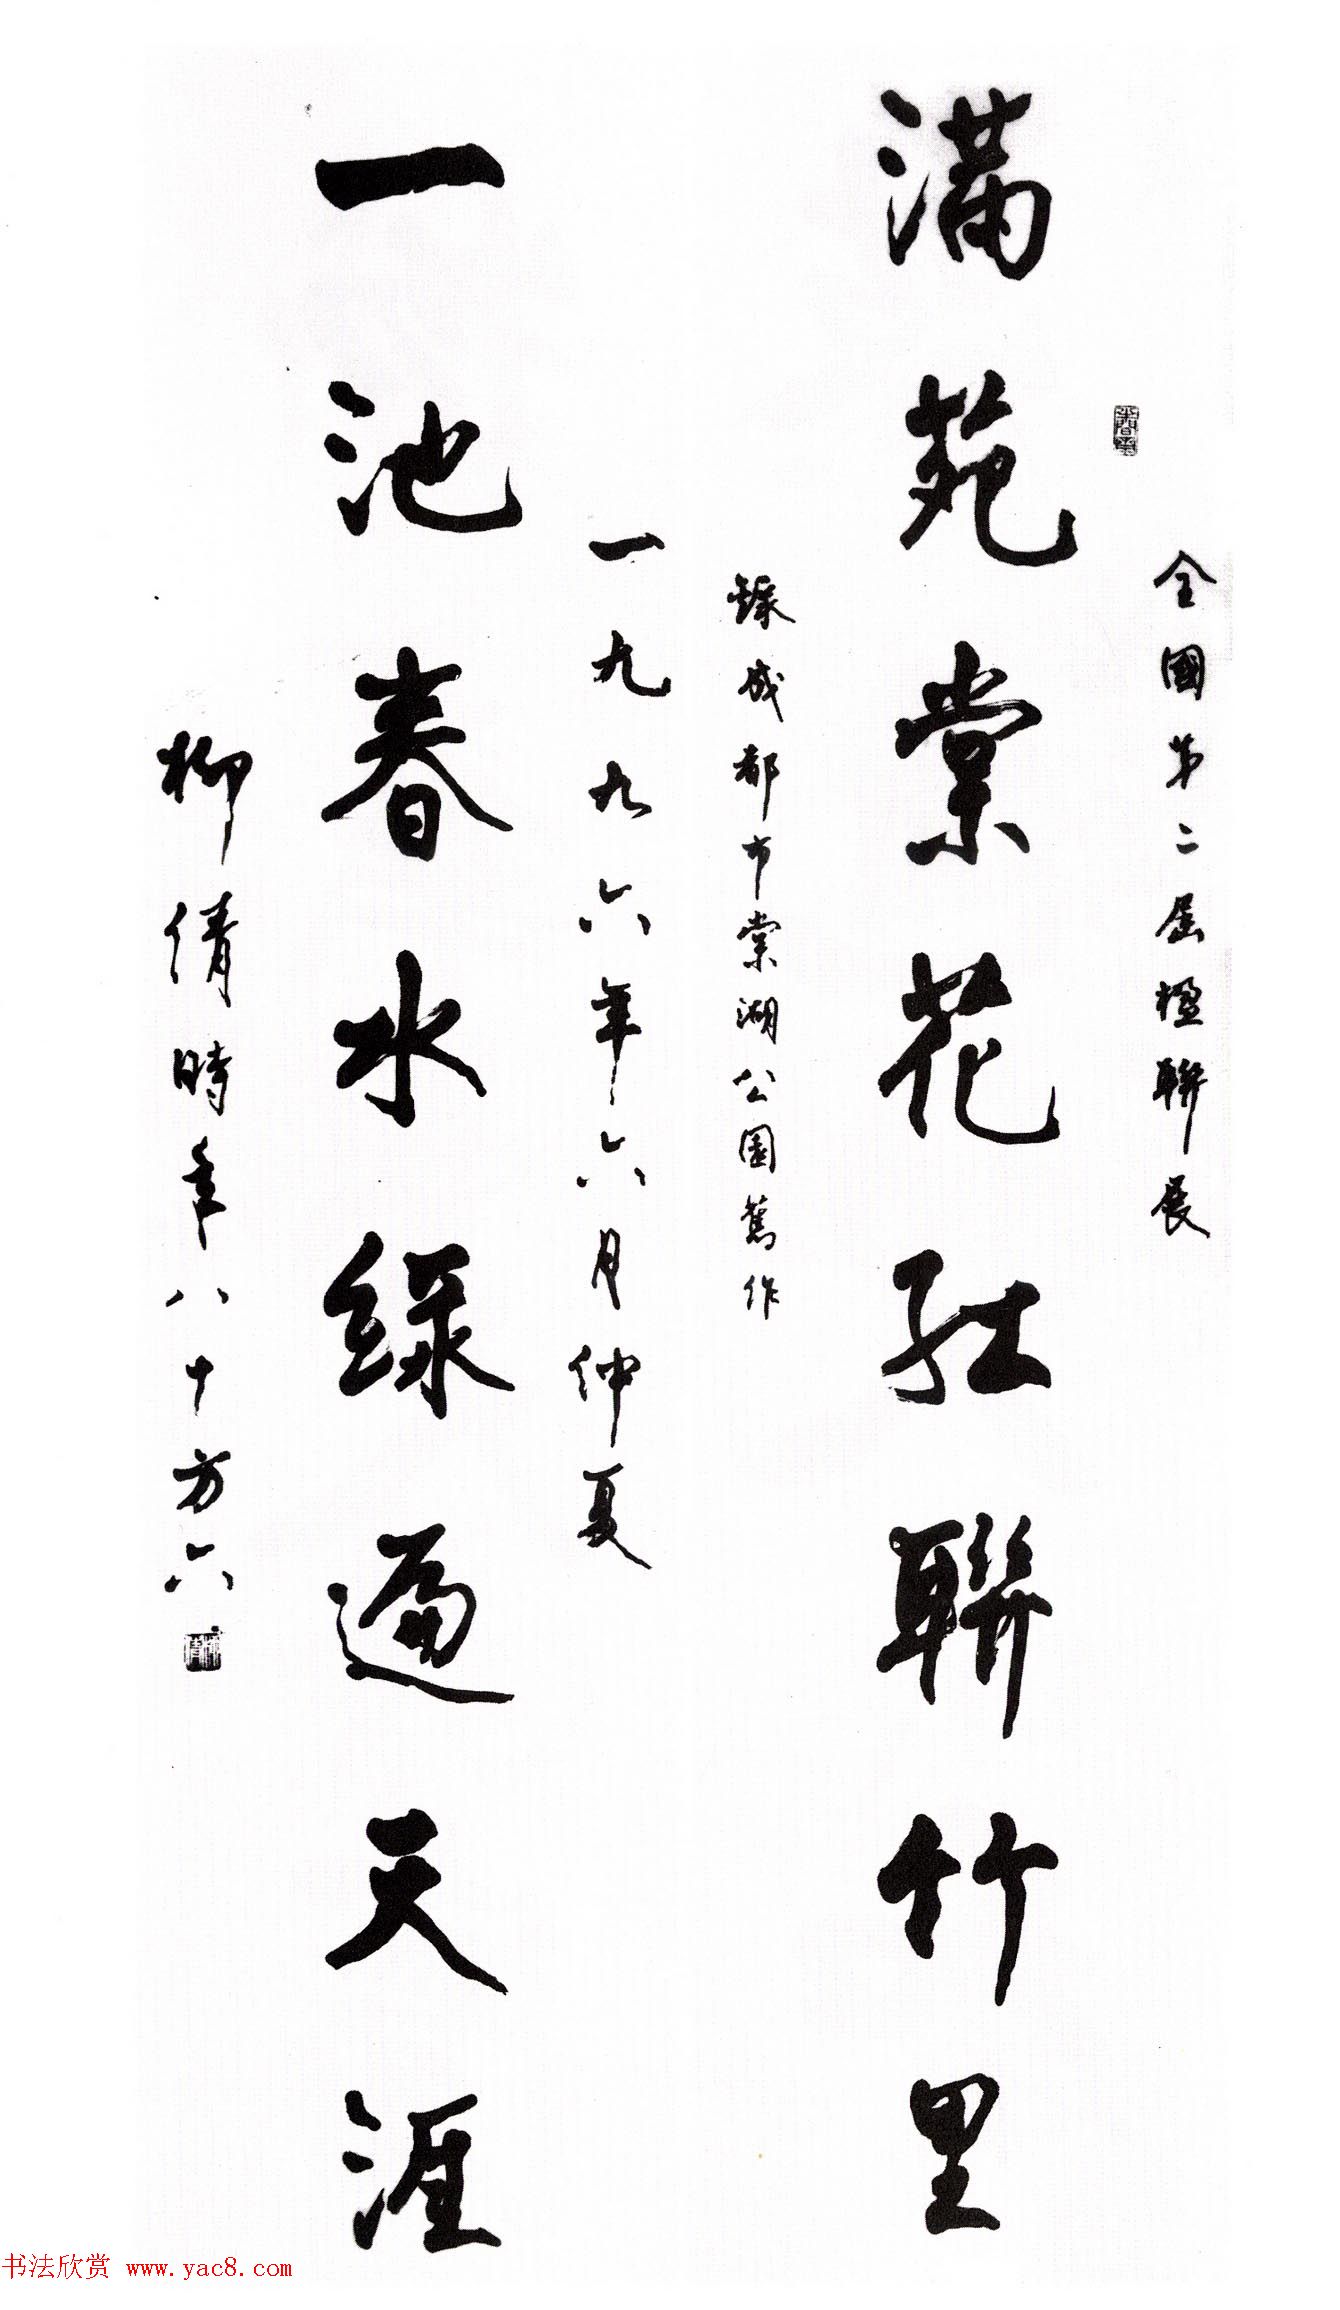 全國第二屆楹聯展
滿苑棠花紅聯竹里
錄成都市棠湖公園舊作
一九九六年六月仲夏
一池春水綠遍天涯
柳倩時年八十方六
书法欣赏 www.yac8.com